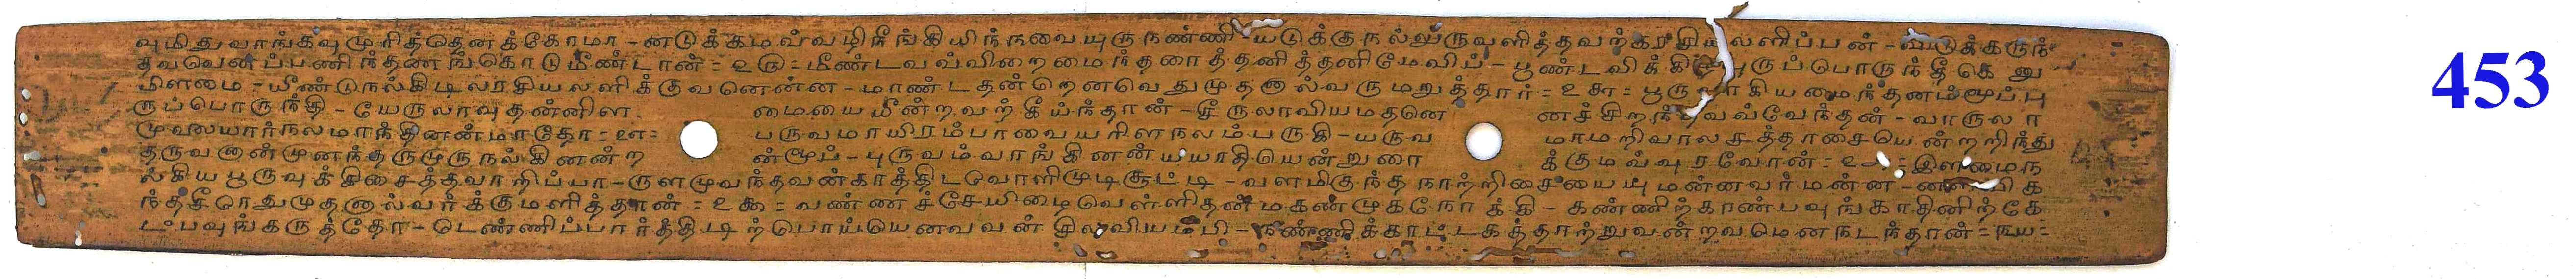 வுமிதுவாங்கவுமுரித்தெனக்கோமா - னடுக்கமவ்வழிநீங்கியிந்நவையுருநண்ணி - யடுக்குநல்லுருவளித்தவற்கரசி ளிப்பன் - வடுக்கருந்
தவவெனப்பணிந்தணங்கொடுமீண்டான் = ௨௫ = மீண்டவவ்விறைமைந்தரைத்தனித்தனிமேவிப் - பூண்டவிக்கி ருப்பொருந்தீகெனு
மிளமை - யீண்டுநல்கிடிலரசியலளிக்குவனென்ன - மாண்டதன்றெனவெதுமுதனால்வருமறுத்தார் = ௨௬ = பூரு கியமைந்தனம்மூப்பு
ருப்பொருந்தி - யேருலாவுதன்னிள மையையீன்றவற்கீய்ந்தான் - சீருலாவியமதனெ னச்சிறந் வவ்வேந்தன் - வாருலா
முலையார்நலமாந்தினன்மாதோ = ௨௭ = பருவமாயிரம்பாவையரிளநலம்பருகி - யருவ மாமறிவாலசத்தாசையென்றறிந்து
தருவனான்முனந்தருமுருநல்கினன்ற ன்மூப் - புருவம்வாங்கினன்யயாதியென்றுரை க்குமவ்வுரவோன் = ௨௮ = இளமைந
ல்கியபூருவுக்கிசைத்தவாறிப்பா - ருளமுவந்தவன்காத்திடவொளிமுடிசூட்டி - வளமிகுந்தநாற்றிசையையுமன்னவர்மன்ன - ன விக
ந்ததீரெதுமுதனால்வர்க்குமளித்தான் = ௨௯ = வண்ணச்சேயிழைவெள்ளிதன்மகண்முகநோக்கி - கண்ணிற்காண்பவுங்காதினிற்கே
ட்பவுங்கருத்தோ - டெண்ணிப்பார்த்திடிற்பொய்யெனவவன் இவவியம்பி - நண்ணிக்காட்டகத்தாற்றுவன்றவமெனநடந்தான் = ௩௰ =
453